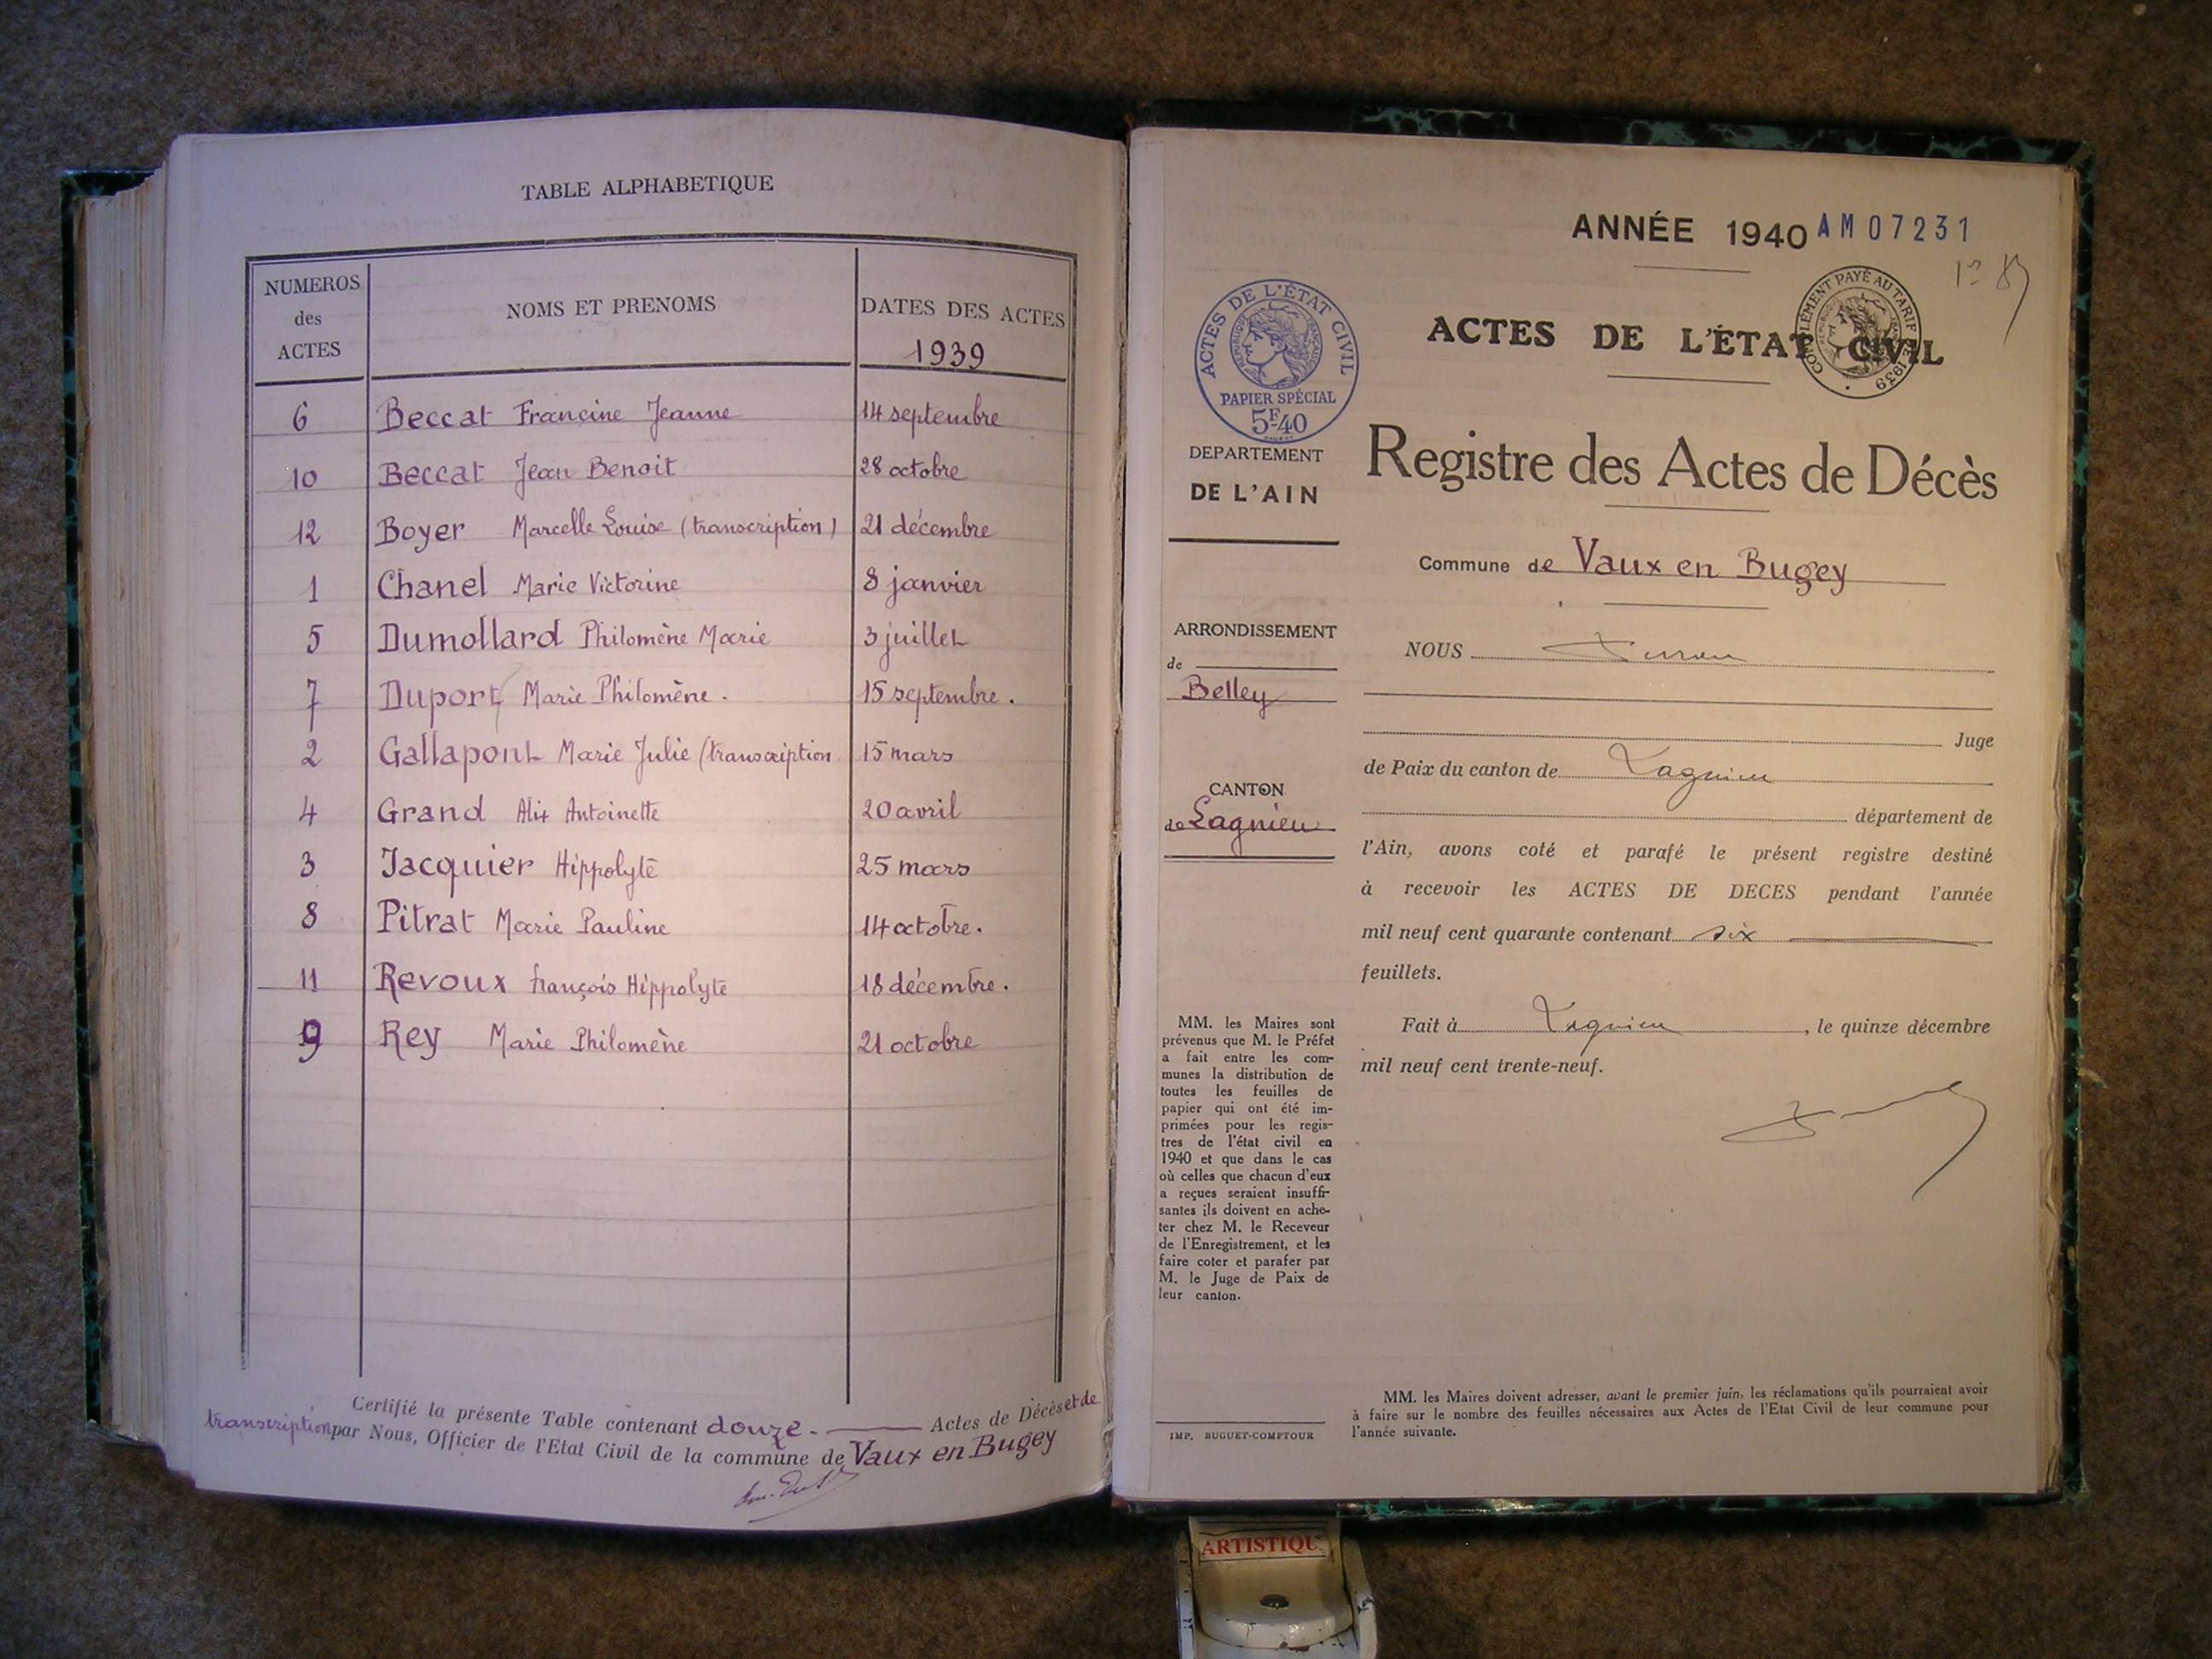 TABLE ALPHABETIQUE
NUMEROS
des
ACTES
NOMS ET PRENOMS
DATES DES ACTES
1939
6 Beccat Francine Jeanne 14 septembre
10 Beccat Jean Benoit 28 octobre
12 Boyer Marcelle Louise (transcription) 21 décembre
1 Chanel Marie Victorine 8 janvier
5 Dumollard Philomène Marie 3 juillet
7 Duport Marie Philomène . 15 septembre .
2 Gallapont Marie Julie (transcription 15 mars
4 Grand Alix Antoinette 20 avril
3 Jacquier Hippolyte 25 mars
8 Pitrat Marie Pauline 14 octobre.
11 Revoux françois Hippolyte 18 décembre.
9 Rey Marie Philomène 21 octobre
Certifié la présente Table contenant douze. Actes de Décès et de
transcription par Nous, Officier de l'Etat Civil de la commune de Vaux en Bugey
ANNÉE 1940 AM07231
ACTES DE L'ÉTAT CIVIL
RÉPUBLIQUE FRANÇAISE
PAPIER SPÉCIAL
5F40
COMPLÉMENT PAYÉ AU TARIF DE 1939
ACTES DE L'ÉTAT CIVIL
DEPARTEMENT
DE L'AIN
Registre des Actes de Décès
Commune de Vaux en Bugey
ARRONDISSEMENT
de
Belley
CANTON
de Lagnieu
NOUS
Juge
de Paix du canton de Lagnieu
département de
l'Ain, avons coté et parafé le présent registre destiné
à recevoir les ACTES DE DECES pendant l'année
mil neuf cent quarante contenant six
feuillets.
Fait à Lagnieu, le quinze décembre
mil neuf cent trente-neuf.
MM. les Maires sont
prévenus que M. le Préfet
a fait entre les com-
munes la distribution de
toutes les feuilles de
papier qui ont été im-
primées pour les regis-
tres de l'état civil en
1940 et que dans le cas
où celles que chacun d'eux
a reçues seraient insuffi-
santes ils doivent en ache-
ter chez M. le Receveur
de l'Enregistrement, et les
faire coter et parafer par
M. le Juge de Paix de
leur canton.
IMP. BUGUET-COMPTOUR
MM. les Maires doivent adresser, avant le premier juin, les réclamations qu'ils pourraient avoir
à faire sur le nombre des feuilles nécessaires aux Actes de l'Etat Civil de leur commune pour
l'année suivante.
ARTISTIQU